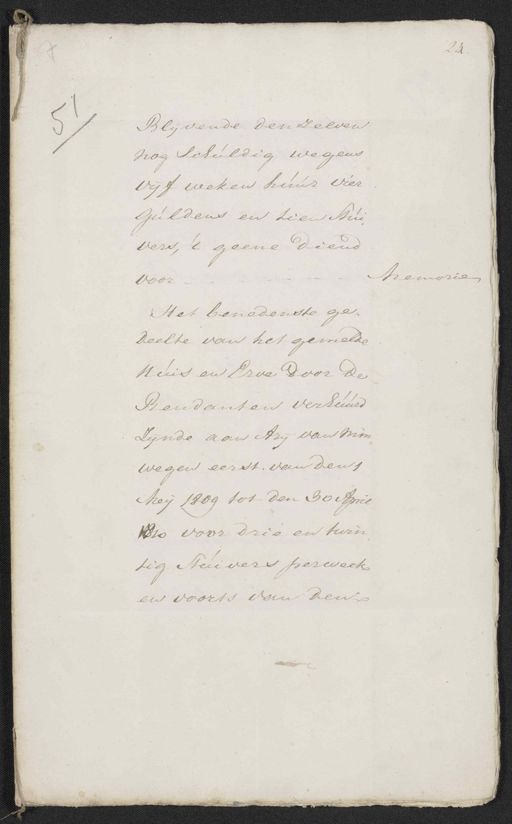 24.
51
Blyvende denzelven
nog Schuldig wegens
vyf weken huur vier
Guldens en tien Stui,
vers, 't geene diend
voor Memorie,
Het benedenste ge,
deelte van het gemelde
Huis en Erve door de
Rendanten verhuurd
Zynde aan Ary van Nim
wegen eerst van den 1
Mey 1809 tot den 30 April
1810 voor drie en twin
tig Stuivers perweek
en voorts van den